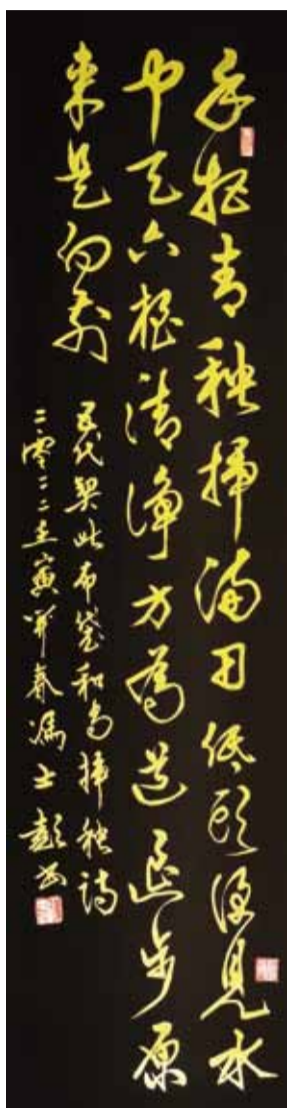 手把青秧插滿田低頭便見水
中天六根清淨方為道退步原
來是向前
五代契此布袋和尚插秧詩
二零二二壬寅春馮士彭